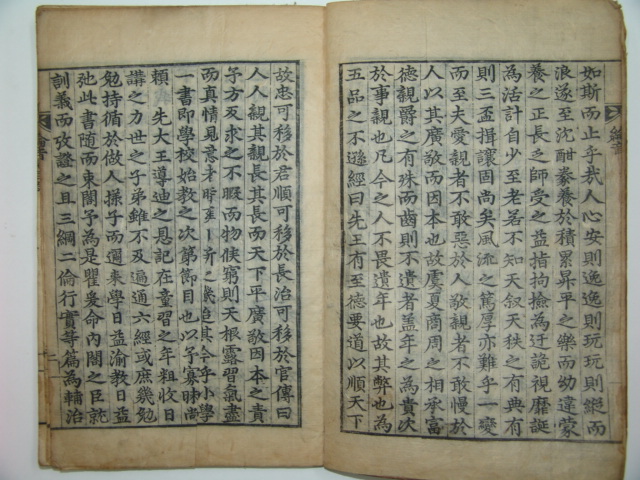 如斯而止乎哉人心安則逸逸則玩玩則縱而
浪遂至沈酣豢養於積累昇平之樂而幼違蒙
養之正長之師受之益指拘撿為迂詭視靡誕
為活計自少至老若不知天叙天秩之有典有
則三盃揖讓固尚矣風流之篤厚亦難乎一變
而至夫愛親者不敢惡於人敬親者不敢慢於
人以其廣敬而因本也故虞夏商周之相承富
德親爵之有殊而齒則不遺者盖年之為貴次
於事親也凡今之人不畏遺年也故其弊也為
五品之不遜經曰先王有至德要道以順天下
故忠可移於君順可移於長治可移於官傳曰
人人親其親長其長而天下平廣敬因本之責
予方反求之不暇而物候窮則天根露習氣盡
而真情見意者時之幾迨其今乎小學
一書即學校始教之次第節目也以予寡昧尚
賴 先大王導迪之恩記在童習之年粗收日
講之力世之子弟雖不及遍通六經或庶幾勉
勉持循於做人㨾子而邇來學日益渝教日益
弛此書隨而束閣予為是瞿爰命內閣之臣就
訓義而攷證之且三綱二倫行實等篇為輔治